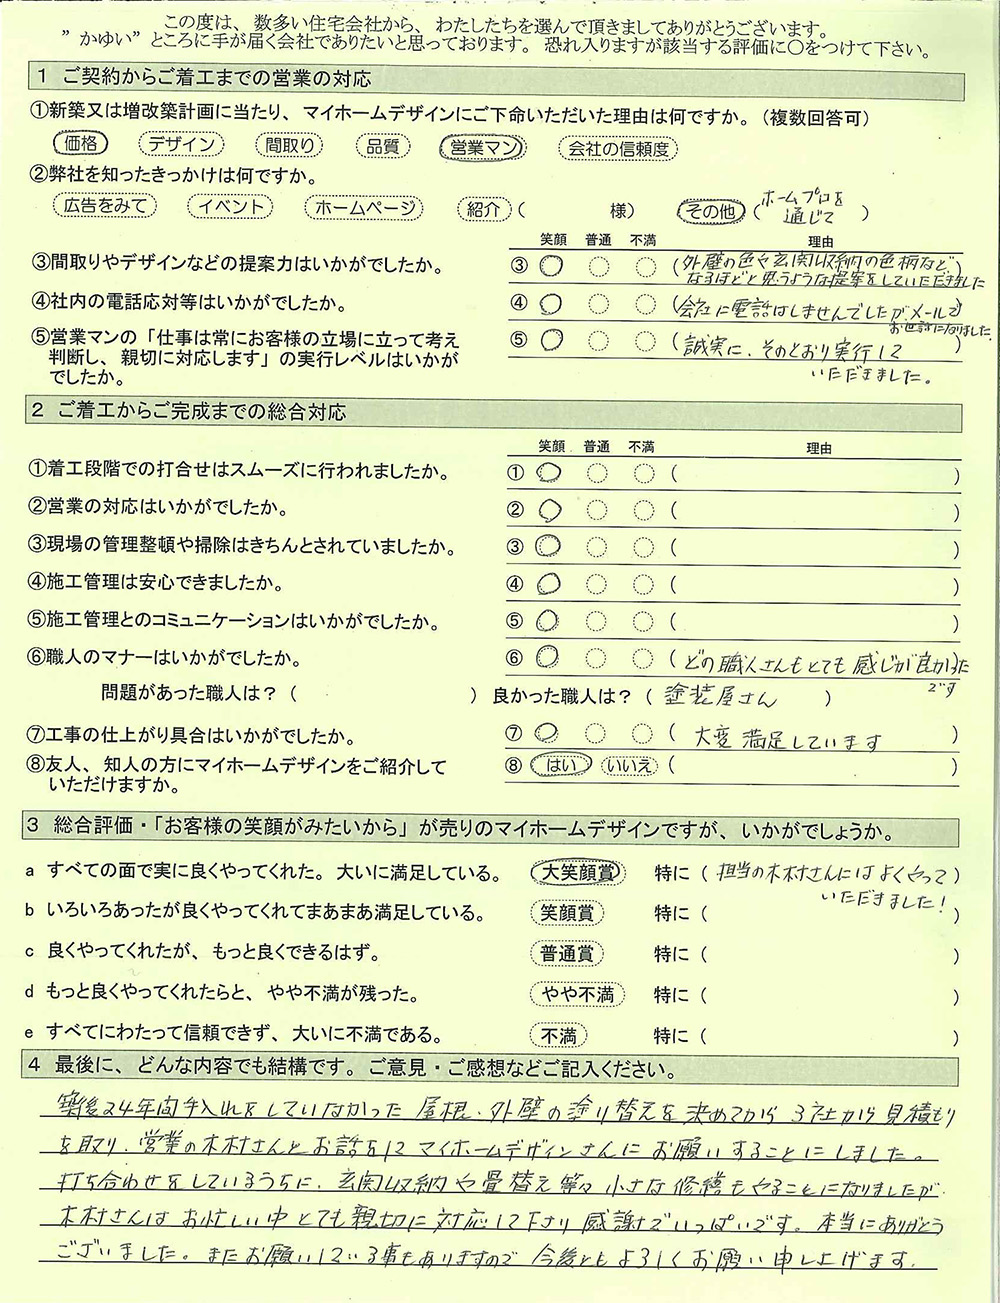 この度は、数多い住宅会社から、わたしたちを選んで頂きましてありがとうございます。
"かゆい"ところに手が届く会社でありたいと思っております。恐れ入りますが該当する評価に〇をつけて下さい。
1 ご契約からご着工までの営業の対応
①新築又は増改築計画に当たり、マイホームデザインにご下命いただいた理由は何ですか。（複数回答可）
価格 デザイン 間取り 品質 営業マン 会社の信頼度
②弊社を知ったきっかけは何ですか。
広告をみて イベント ホームページ 紹介（ 様） その他（ホームプロを通じて）
笑顔 普通 不満 理由
③間取りやデザインなどの提案力はいかがでしたか。 ③（外壁の色や玄関収納の色柄など）
なるほどと思うような提案をしていただきました
④社内の電話応対等はいかがでしたか。 ④（会社に電話はしませんでしたが、メールで）
お世話になりました
⑤営業マンの「仕事は常にお客様の立場に立って考え ⑤（誠実に、そのとおり実行して）
判断し、親切に対応します」の実行レベルはいかが
でしたか。 いただきました。
2 ご着工からご完成までの総合対応
笑顔 普通 不満 理由
①着工段階での打合せはスムーズに行われましたか。 ①（ ）
②営業の対応はいかがでしたか。 ②（ ）
③現場の管理整頓や掃除はきちんとされていましたか。 ③（ ）
④施工管理は安心できましたか。 ④（ ）
⑤施工管理とのコミュニケーションはいかがでしたか。 ⑤（ ）
⑥職人のマナーはいかがでしたか。 ⑥（どの職人さんもとても感じが良かった）
です
問題があった職人は？（ ）良かった職人は？（塗装屋さん ）
⑦工事の仕上がり具合はいかがでしたか。 ⑦（大変満足しています ）
⑧友人、知人の方にマイホームデザインをご紹介して ⑧ はい いいえ（ ）
いただけますか。
3 総合評価・「お客様の笑顔がみたいから」が売りのマイホームデザインですが、いかがでしょうか。
a すべての面で実に良くやってくれた。大いに満足している。 大笑顔賞 特に（担当の木村さんにはよくやって）
いただきました！
b いろいろあったが良くやってくれてまあまあ満足している。 笑顔賞 特に（ ）
c 良くやってくれたが、もっと良くできるはず。 普通賞 特に（ ）
d もっと良くやってくれたらと、やや不満が残った。 やや不満 特に（ ）
e すべてにわたって信頼できず、大いに不満である。 不満 特に（ ）
4 最後に、どんな内容でも結構です。ご意見・ご感想などご記入ください。
築後24年間手入れをしていなかった屋根、外壁の塗り替えを決めてから3社から見積もり
を取り、営業の木村さんとお話をしてマイホームデザインさんにお願いすることにしました。
打ち合わせをしているうちに、玄関収納や畳替え等々小さな修繕もやることになりましたが、
木村さんはお忙しい中とても親切に対応して下さり感謝でいっぱいです。本当にありがとう
ございました。またお願いしている事もありますので今後ともよろしくお願い申し上げます。